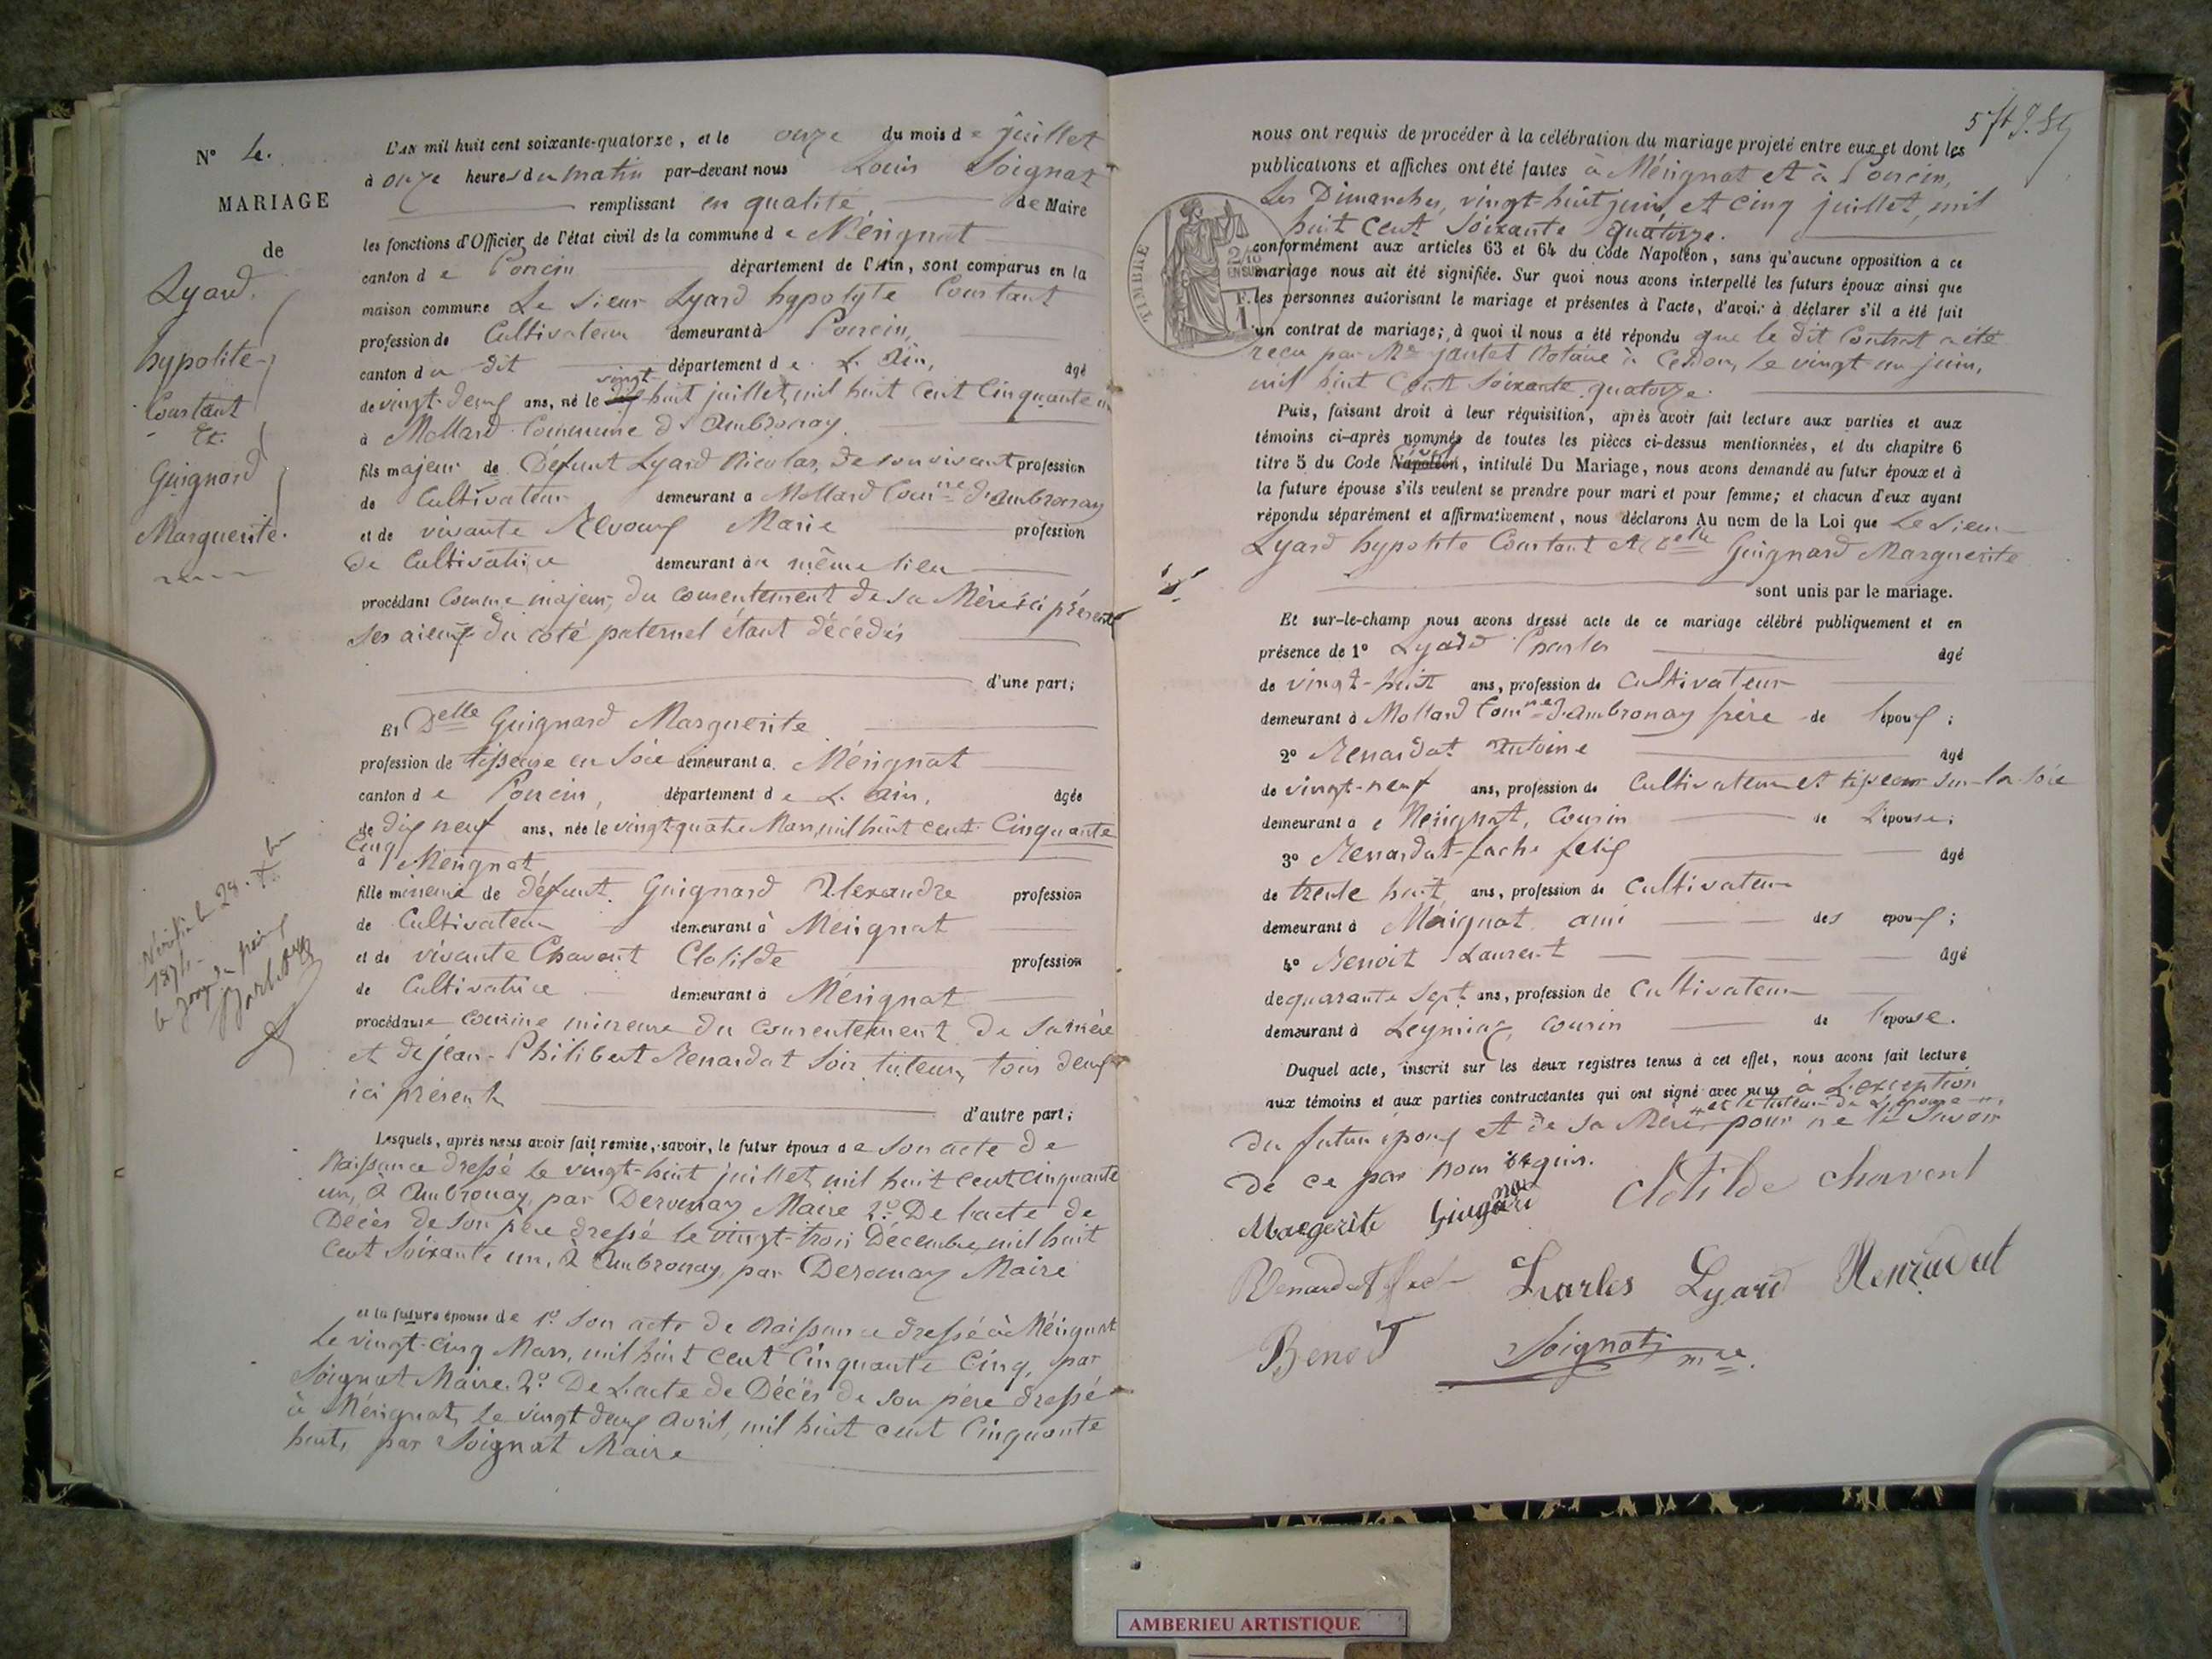 N° 4.
MARIAGE
de
Lyard
hypolite
Constant
Et
Guignard
Marguerite.
L'AN mil huit cent soixante-quatorze, et le onze du mois de juillet
à onze heures du matin par-devant nous Louis Soignat
remplissant en qualité de Maire
les fonctions d'Officier de l'état civil de la commune de Mérignat
canton de Poncin département de l'Ain, sont comparus en la
maison commune Le Sieur Lyard hypolyte Constant
profession de Cultivateur demeurant à Poncin,
canton du dit département de L'Ain, âgé
vingt
de vingt-deux ans, né le huit juillet, mil huit cent Cinquante un
à Mollard Commune d'Ambronay.
fils majeur de Défunt Lyard Nicolas, de son vivant profession
de Cultivateur demeurant a Mollard Comne d'Ambronay
et de vivante Revoux Marie profession
de Cultivatrice demeurant au même lieu
procédant Comme majeur, du consentement de sa Mère ici présente
ses aieux du coté paternel étant décédés
d'une part;
Et Delle Guignard Marguerite
profession de tisseuse en Soie demeurant a Mérignat
canton de Poncin, département de L'Ain, âgée
de dix neuf ans, née le vingt-quatre Mars, mil huit cent Cinquante
Cinq
à Mérignat
fille mineure de défunt Guignard Alexandre profession
de Cultivateur demeurant à Mérignat
et de vivante Chavent Clotilde profession
de Cultivatrice demeurant à Mérignat
procédant comme mineure du consentement de sa mère
et de jean-Philibert Renardat son tuteur, tous deux
ici présents
d'autre part;
Lesquels, après nous avoir fait remise, savoir, le futur époux de son acte de
Naissance dressé le vingt-huit juillet, mil huit cent cinquante
un, à Ambronay, par Maire 2° De l'acte de
Décès de son père dressé le vingt-trois Décembre, mil huit
cent soixante un, à Ambronay, par Maire
et la future épouse de 1° Son acte de Naissance dressé à Mérignat
le vingt-cinq Mars, mil huit cent Cinquante Cinq, par
Soignat Maire. 2° De L'acte de Décès de son père dressé
à Mérignat, le vingt deux Avril, mil huit cent Cinquante
huit, par Soignat Maire
Vérifié le 28 Xbre
1874
le Juge de paix
57
nous ont requis de procéder à la célébration du mariage projeté entre eux, et dont les
publications et affiches ont été faites à Mérignat et à Poncin,
Les Dimanches, vingt-huit juin et cinq juillet, mil
huit cent Soixante quatorze.
conformément aux articles 63 et 64 du Code Napoléon, sans qu'aucune opposition à ce
mariage nous ait été signifiée. Sur quoi nous avons interpellé les futurs époux ainsi que
les personnes autorisant le mariage et présentes à l'acte, d'avoir à déclarer s'il a été fait
un contrat de mariage; à quoi il nous a été répondu que le dit Contrat a été
reçu par Me Notaire à Cerdon, le vingt un juin,
mil huit Cent Soixante quatorze.
TIMBRE
2/10
EN SUS
F.
1
Puis, faisant droit à leur réquisition, après avoir fait lecture aux parties et aux
témoins ci-après nommés de toutes les pièces ci-dessus mentionnées, et du chapitre 6
Civil
titre 5 du Code Napoléon, intitulé Du Mariage, nous avons demandé au futur époux et à
la future épouse s'ils veulent se prendre pour mari et pour femme; et chacun d'eux ayant
répondu séparément et affirmativement, nous déclarons Au nom de la Loi que Le Sieur
Lyard hypolite Constant et Delle Guignard Marguerite
sont unis par le mariage.
Et sur-le-champ nous avons dressé acte de ce mariage célébré publiquement et en
présence de 1° Lyard Charles âgé
de vingt-huit ans, profession de Cultivateur
demeurant à Mollard Comne d'Ambronay frère de l'époux;
2° Renardat Antoine âgé
de vingt-neuf ans, profession de Cultivateur et tisseur sur la soie
demeurant à Mérignat, Cousin de L'épouse;
3° Renardat-fache felix âgé
de trente huit ans, profession de Cultivateur
demeurant à Mérignat ami des epoux;
4° Benoit Laurent âgé
de quarante sept ans, profession de Cultivateur
demeurant à Leymiat, cousin de l'epouse.
Duquel acte, inscrit sur les deux registres tenus à cet effet, nous avons fait lecture
aux témoins et aux parties contractantes qui ont signé avec nous à L'exception
et le tuteur de L'épouse
du futur époux et de sa Mère pour ne le Savoir
de ce par nous requis.
Margerite Guignard Clotilde Chavent
Renardat Charles Lyard Renardat
Benoit Soignat mre.
AMBERIEU ARTISTIQUE